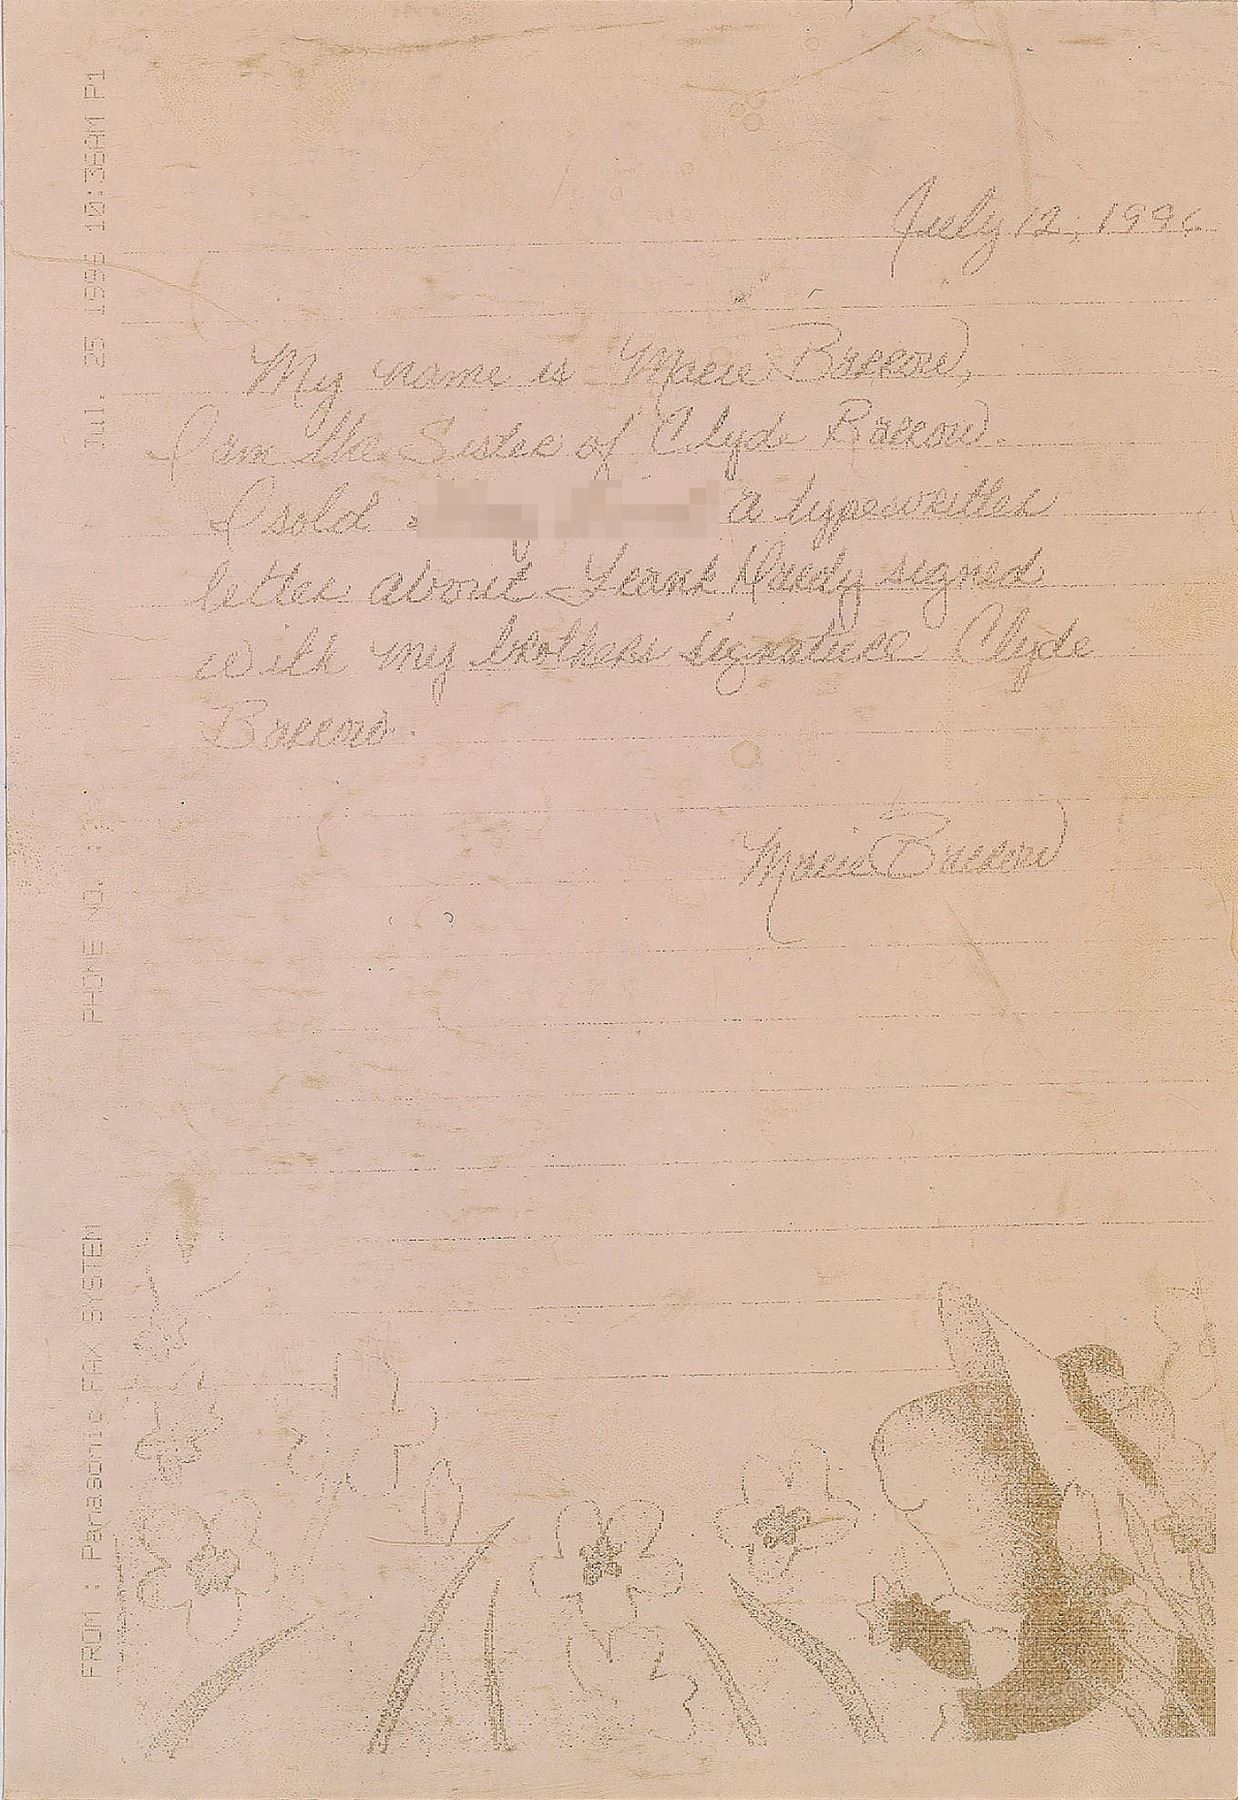 July 12, 199
My name is Marie Barrow,
I am the Sister of Clyde Barrow.
I sold a typewritten
letter about Frank Hardy signed
with my brothers signature Clyde
Barrow.
Marie Barrow
FROM : Panasonic FAX SYSTEM
PHONE NO. :
Jul. 25 199 10:38AM P1